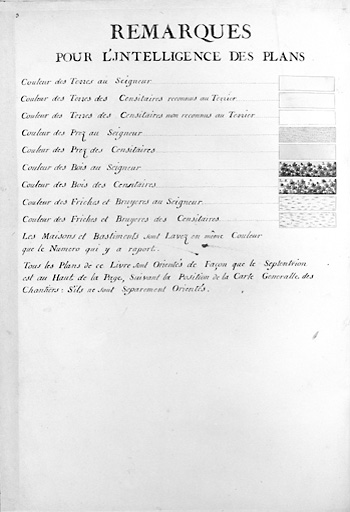 REMARQUES
POUR L'INTELLIGENCE DES PLANS
Couleur des Terres au Seigneur
Couleur des Terres des Censitaires reconnus au Terrier
Couleur des Terres des Censitaires non reconnus au Terrier
Couleur des Prez au Seigneur
Couleur des Prez des Censitaires
Couleur des Bois au Seigneur
Couleur des Bois des Censitaires
Couleur des Friches et Bruyeres au Seigneur
Couleur des Friches et Bruyeres des Censitaires
Les Maisons et Bastiments sont Lavez en même Couleur
que le Numero qui y a raport.
Tous les Plans de ce Livre sont Orientés de Façon que le Septentrion
est au Haut de la Page, Suivant la Position de la Carte Generalle des
Chantiers: S'ils ne sont Separement Orientés.